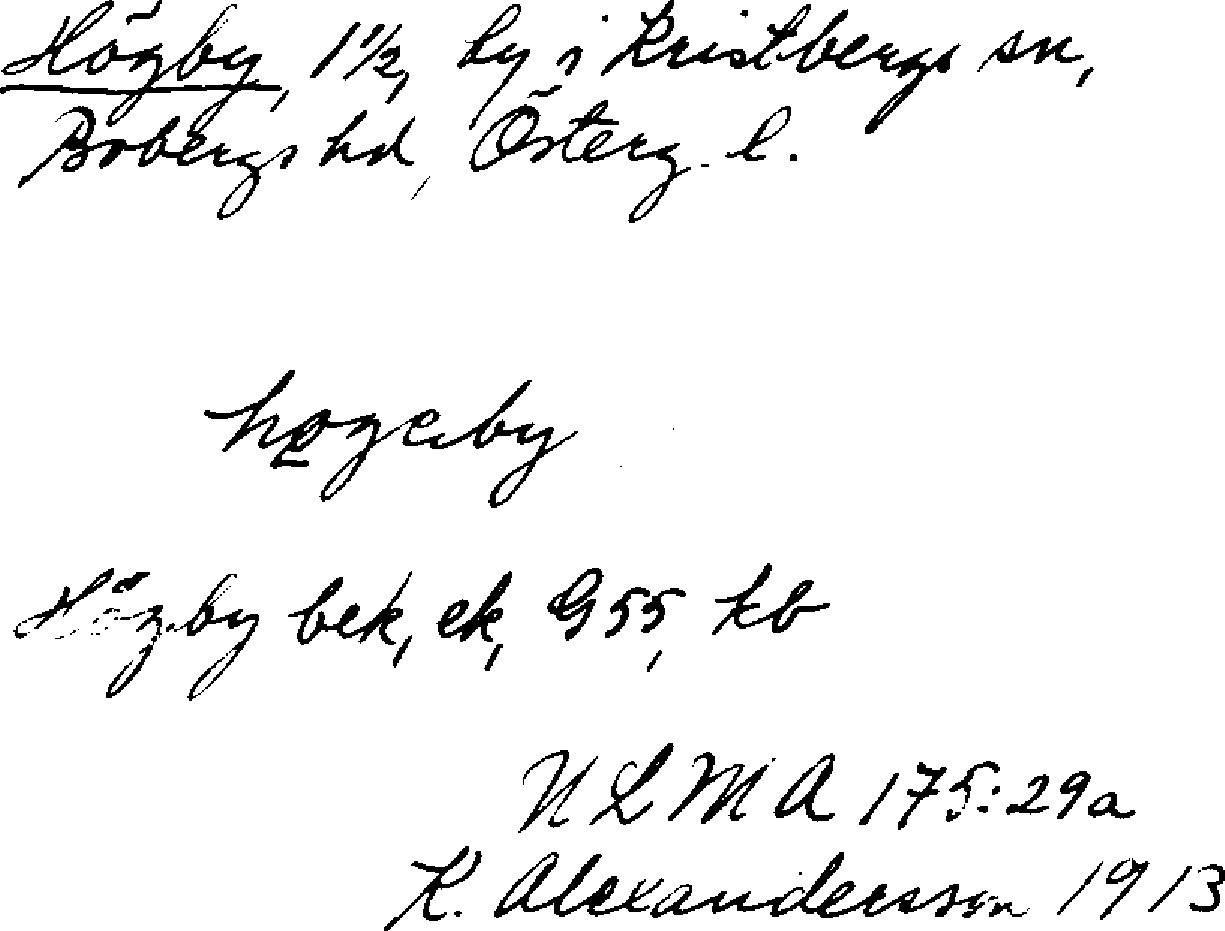 Högby, 1 1/2, by i Kristbergs sn,
Bobergs hd, Österg. l.
högeby
Högby bek, ek, G55, kb
ULMA 175:29a
K. Alexandersson 1913